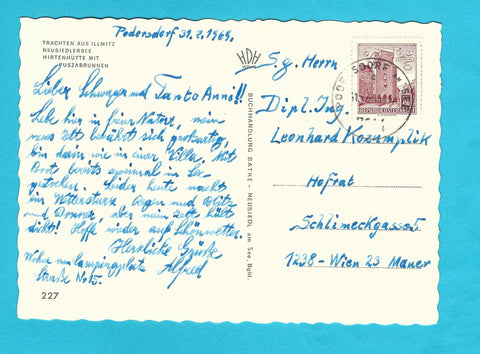 Podersdorf 31.7.1969.
TRACHTEN AUS ILLMITZ
NEUSIEDLERSEE
HIRTENHÜTTE MIT
PUSZABRUNNEN
Lieber Schwager und Tante Anni!!
Lebe hier in freier Natur, mein
neues Zelt bewährt sich großartig,
bin darin wie in einer Villa. Mit
Boot bereits einmal im See
. Leider heute nacht
ein Wettersturz Regen und Blitz
und Donner, aber mein Zelt hält
dicht! Hoffe wieder auf Schönwetter.
Herzliche Grüße
Alfred
Wohne am Campingplatz
Straße No 15.
227
HDH
BUCHHANDLUNG BATKI - NEUSIEDL am See, Bgld.
S.g. Herrn
Dipl. Ing.
Leonhard Kozumplik
Hofrat
Schlimeckgasse 5
1238 - Wien 23 Mauer
REPUBLIK ÖSTERREICH